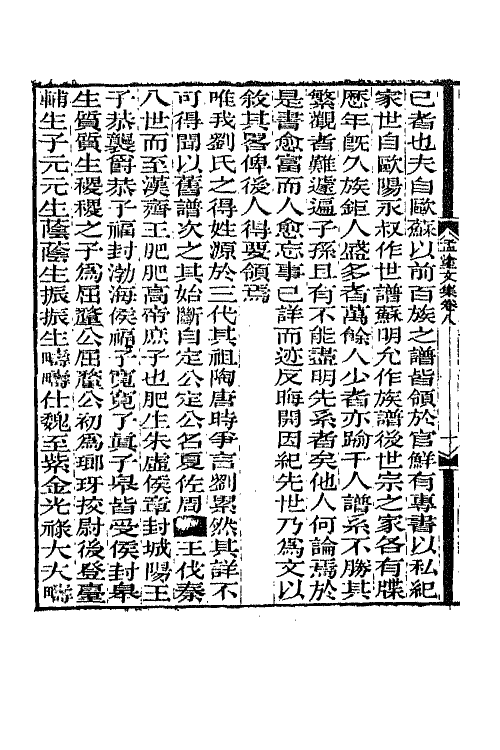 已者也夫自歐蘇以前百族之譜皆領於官鮮有專書以私紀
家世自歐陽永叔作世譜蘇明允作族譜後世宗之家各有牒
歷年既久族鉅人盛多者萬餘人少者亦踰千人譜系不勝其
繁觀者難遽遍子孫且有不能盡明先系者矣他人何論焉於
是書愈富而人愈忘事已詳而迹反晦開因紀先世乃為文以
敘其畧俾後人得要領焉
唯我劉氏之得姓源於三代其祖陶唐時爭言劉累然其詳不
可得聞以舊譜次之其始斷自定公定公名夏佐周王伐秦
八世而至漢齊王肥肥高帝庶子也肥生朱虛侯章封城陽王
子恭襲爵恭子福封渤海侯福子寬寬子真子皋皆受侯封皋
生質質生稷稷之子為屈釐公屈釐公初為瑯玡按尉後登臺
輔生子元元生蔭蔭生振振生疇疇仕魏至紫金光祿大夫疇
孟塗文集卷八